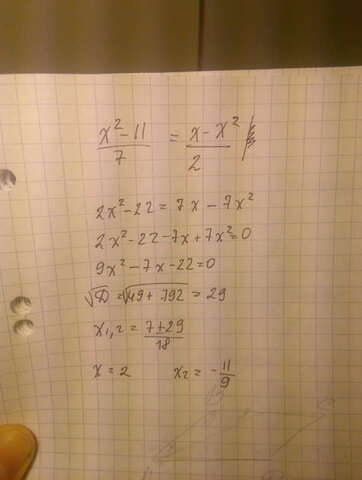 x² - 11 / 7 = x - x² / 2
2x² - 22 = 7x - 7x²
2x² - 22 - 7x + 7x² = 0
9x² - 7x - 22 = 0
√D = √49 + 792 = 29
x₁,₂ = 7 ± 29 / 18
x = 2 x₂ = - 11 / 9